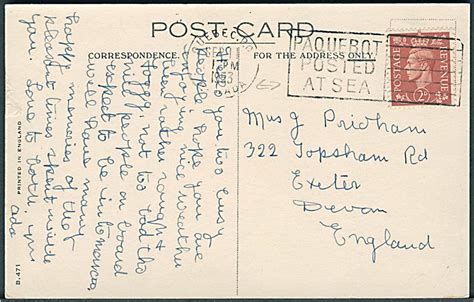 POST CARD
CORRESPONDENCE.
FOR THE ADDRESS ONLY.
QUEBEC
SEP
PM
1953
PAQUEBOT
POSTED
AT SEA
POSTAGE
REVENUE
2D
Are you too busy
people, hope you are
enjoying nice weather
been rather rough &
foggy, not too bad tho
mill people on board
expect to be in tomorrow,
we'll have many
happy memories of the
pleasant times spent with
you. Love to both of you
Ada
Mrs J Pridham
322 Topsham Rd
Exeter
Devon
England
PRINTED IN ENGLAND
B.471